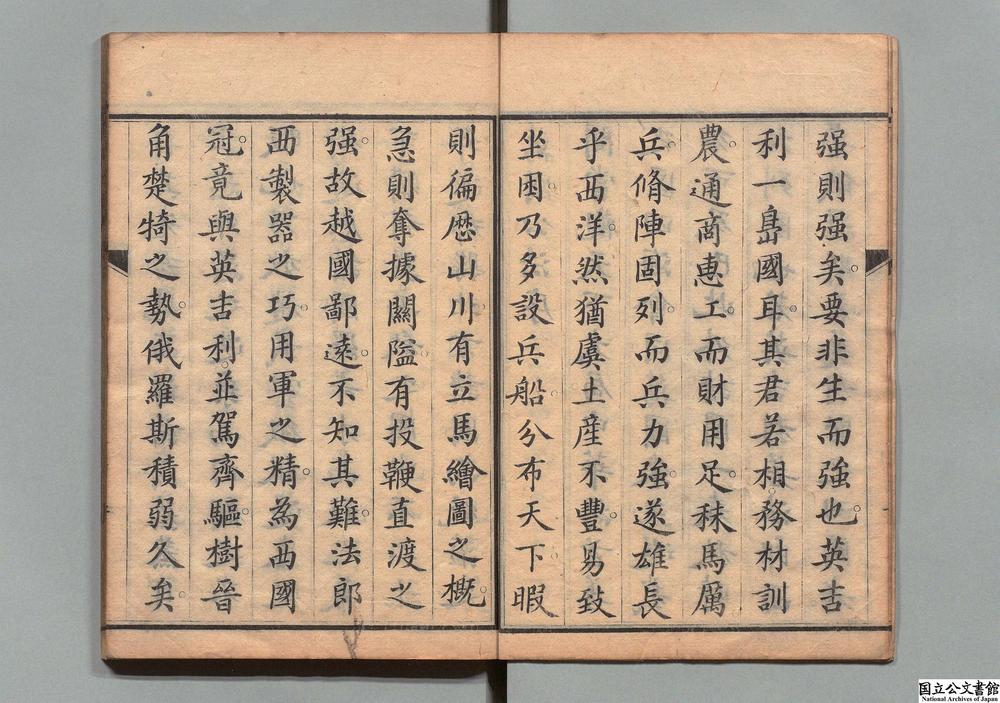 强則强矣。要非生而強也。英吉
利一島國耳。其君若相。務材訓
農。通商惠工。而財用足。秣馬厲
兵。脩陣固列。而兵力強。遂雄長
乎西洋。然猶虞土産不豐。易致
坐困。乃多設兵船。分布天下。暇
則徧歴山川。有立馬繪圖之概。
急則奪據關隘。有投鞭直渡之
强。故越國鄙遠。不知其難。法郎
西製器之巧。用軍之精。為西國
冠。竟與英吉利。並駕齊驅。樹晉
角楚犄之勢。俄羅斯積弱久矣。
国立公文書館
National Archives of Japan